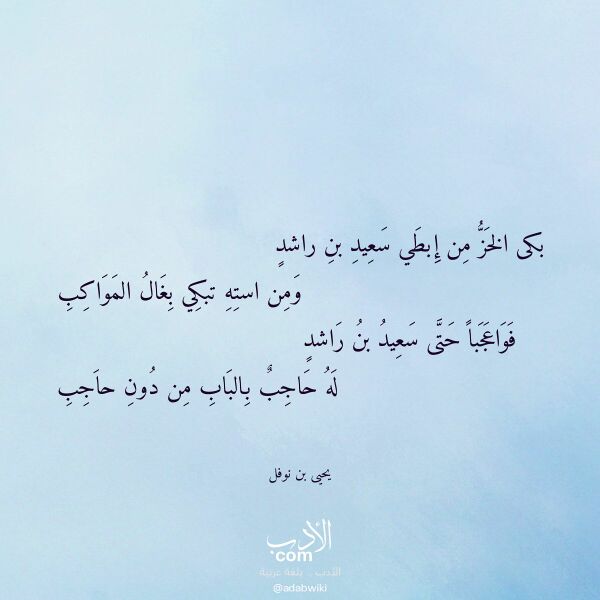 بكى الخَزُّ مِن إِبطَي سَعِيدِ بنِ راشدٍ
وَمِن استِهِ تبكِي بِغَالُ المَوَاكِبِ
فَوَاعَجَباً حَتَّى سَعِيدُ بنُ رَاشدٍ
لَهُ حَاجِبٌ بِالبَابِ مِن دُونِ حاَجِبِ
يحيى بن نوفل
الأدب
com
الأدب .. بلغة عربية
@adabwiki